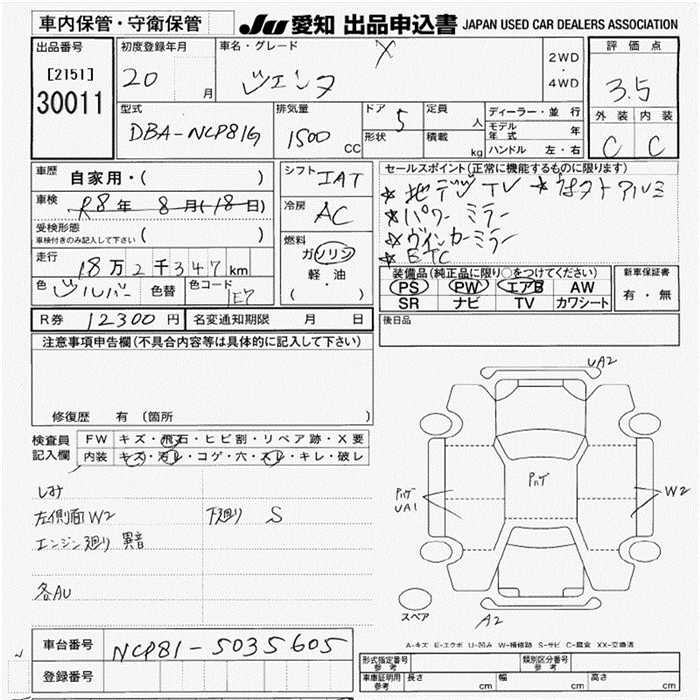 車内保管・守衛保管
JU 愛知 出品申込書 JAPAN USED CAR DEALERS ASSOCIATION
出品番号
[2151]
30011
初度登録年月
20 月
車名・グレード
X
シエンタ
2WD
・
4WD
評価点
3.5
外装 内装
C C
型式
DBA-NCP81G
排気量
1500 CC
ドア 5
形状
定員 人
積載 kg
ディーラー・並行
モデル年式 年
ハンドル 左・右
車歴 自家用・( )
車検 R8年 8月(18日)
受検形態
車検付きのみ記入して下さい ( )
走行 18万2千347km
色 シルバー 色替 色コード 1E7
シフト IAT
冷房 AC
燃料
ガソリン
軽・油
( )
セールスポイント(正常に機能するものに限ります)
★地デジTV ★社外アルミ
★パワーミラー
★ウインカーミラー
★ETC
装備品(純正品に限り○をつけてください)
PS PW エアB AW
SR ナビ TV カワシート
新車保証書
有・無
R券 12300円 名変通知期限 月 日
後日品
注意事項申告欄(不具合内容等は具体的に記入して下さい)
修復歴 有 (箇所 )
検査員記入欄
FW キズ・飛石・ヒビ割・リペア跡・X要
内装 キズ・汚レ・コゲ・穴・スレ・キレ・破レ
しみ
左側面W2 下廻り S
エンジン廻り 異音
各AU
UA2
PハゲUA1
Pハゲ
W2
A2
スペア
A-キズ E-エクボ U-凹み W-補修跡 S-サビ C-腐食 XX-交換済
車台番号 NCP81-5035605
登録番号
形式指定番号 参考
類別区分番号 参考
車庫証明用 参考 長さ cm 幅 cm 高さ cm